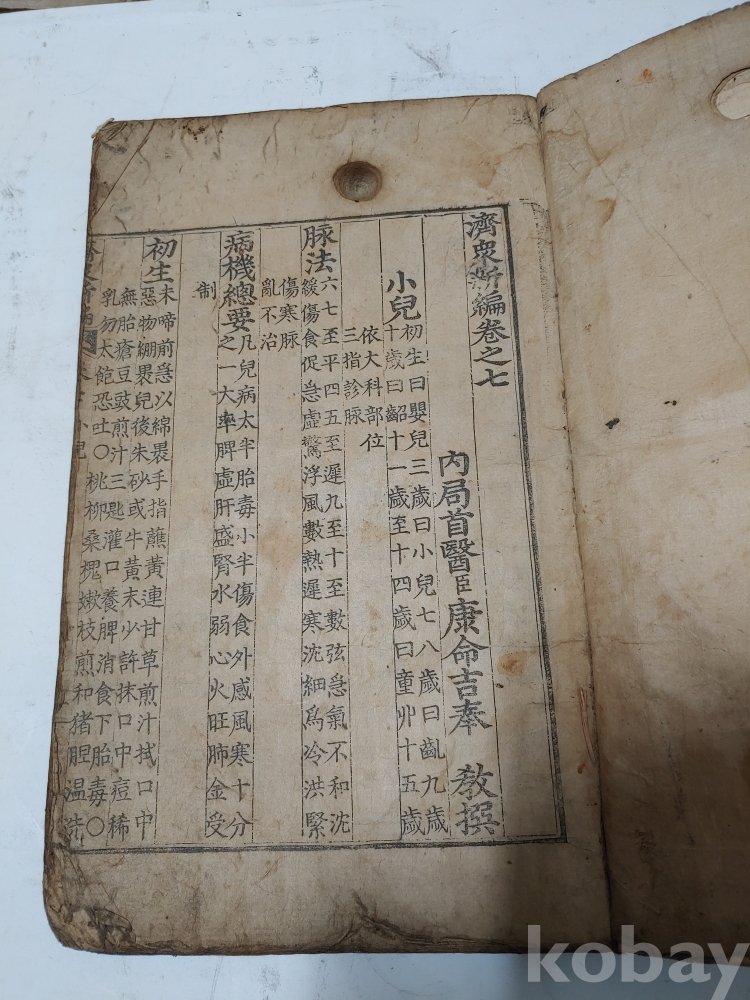 濟衆新編卷之七
內局首醫臣康命吉奉 教撰
小兒
初生曰嬰兒三歲曰小兒七八歲曰齓九歲
十歲曰齠十一歲至十四歲曰童丱十五歲
依大科部位
三指診脉
脉法
六七至平四五至遲九至十至數弦急氣不和沈
緩傷食促急虛驚浮風數熱遲寒沈細爲冷洪緊
傷寒脉
亂不治
病機總要
凡兒病太半胎毒小半傷食外感風寒十分
之一大率脾虛肝盛腎水弱心火旺肺金受
制
初生
未啼前急以綿裹手指蘸黃連甘草煎汁拭口中
惡物綳裹兒後朱砂或牛黃末少許抹口中痘稀
無胎瘡豆豉煎汁三匙灌口養脾消食下胎毒〇
乳勿太飽恐吐〇桃柳桑槐嫩枝煎和猪膽温洗
kobay